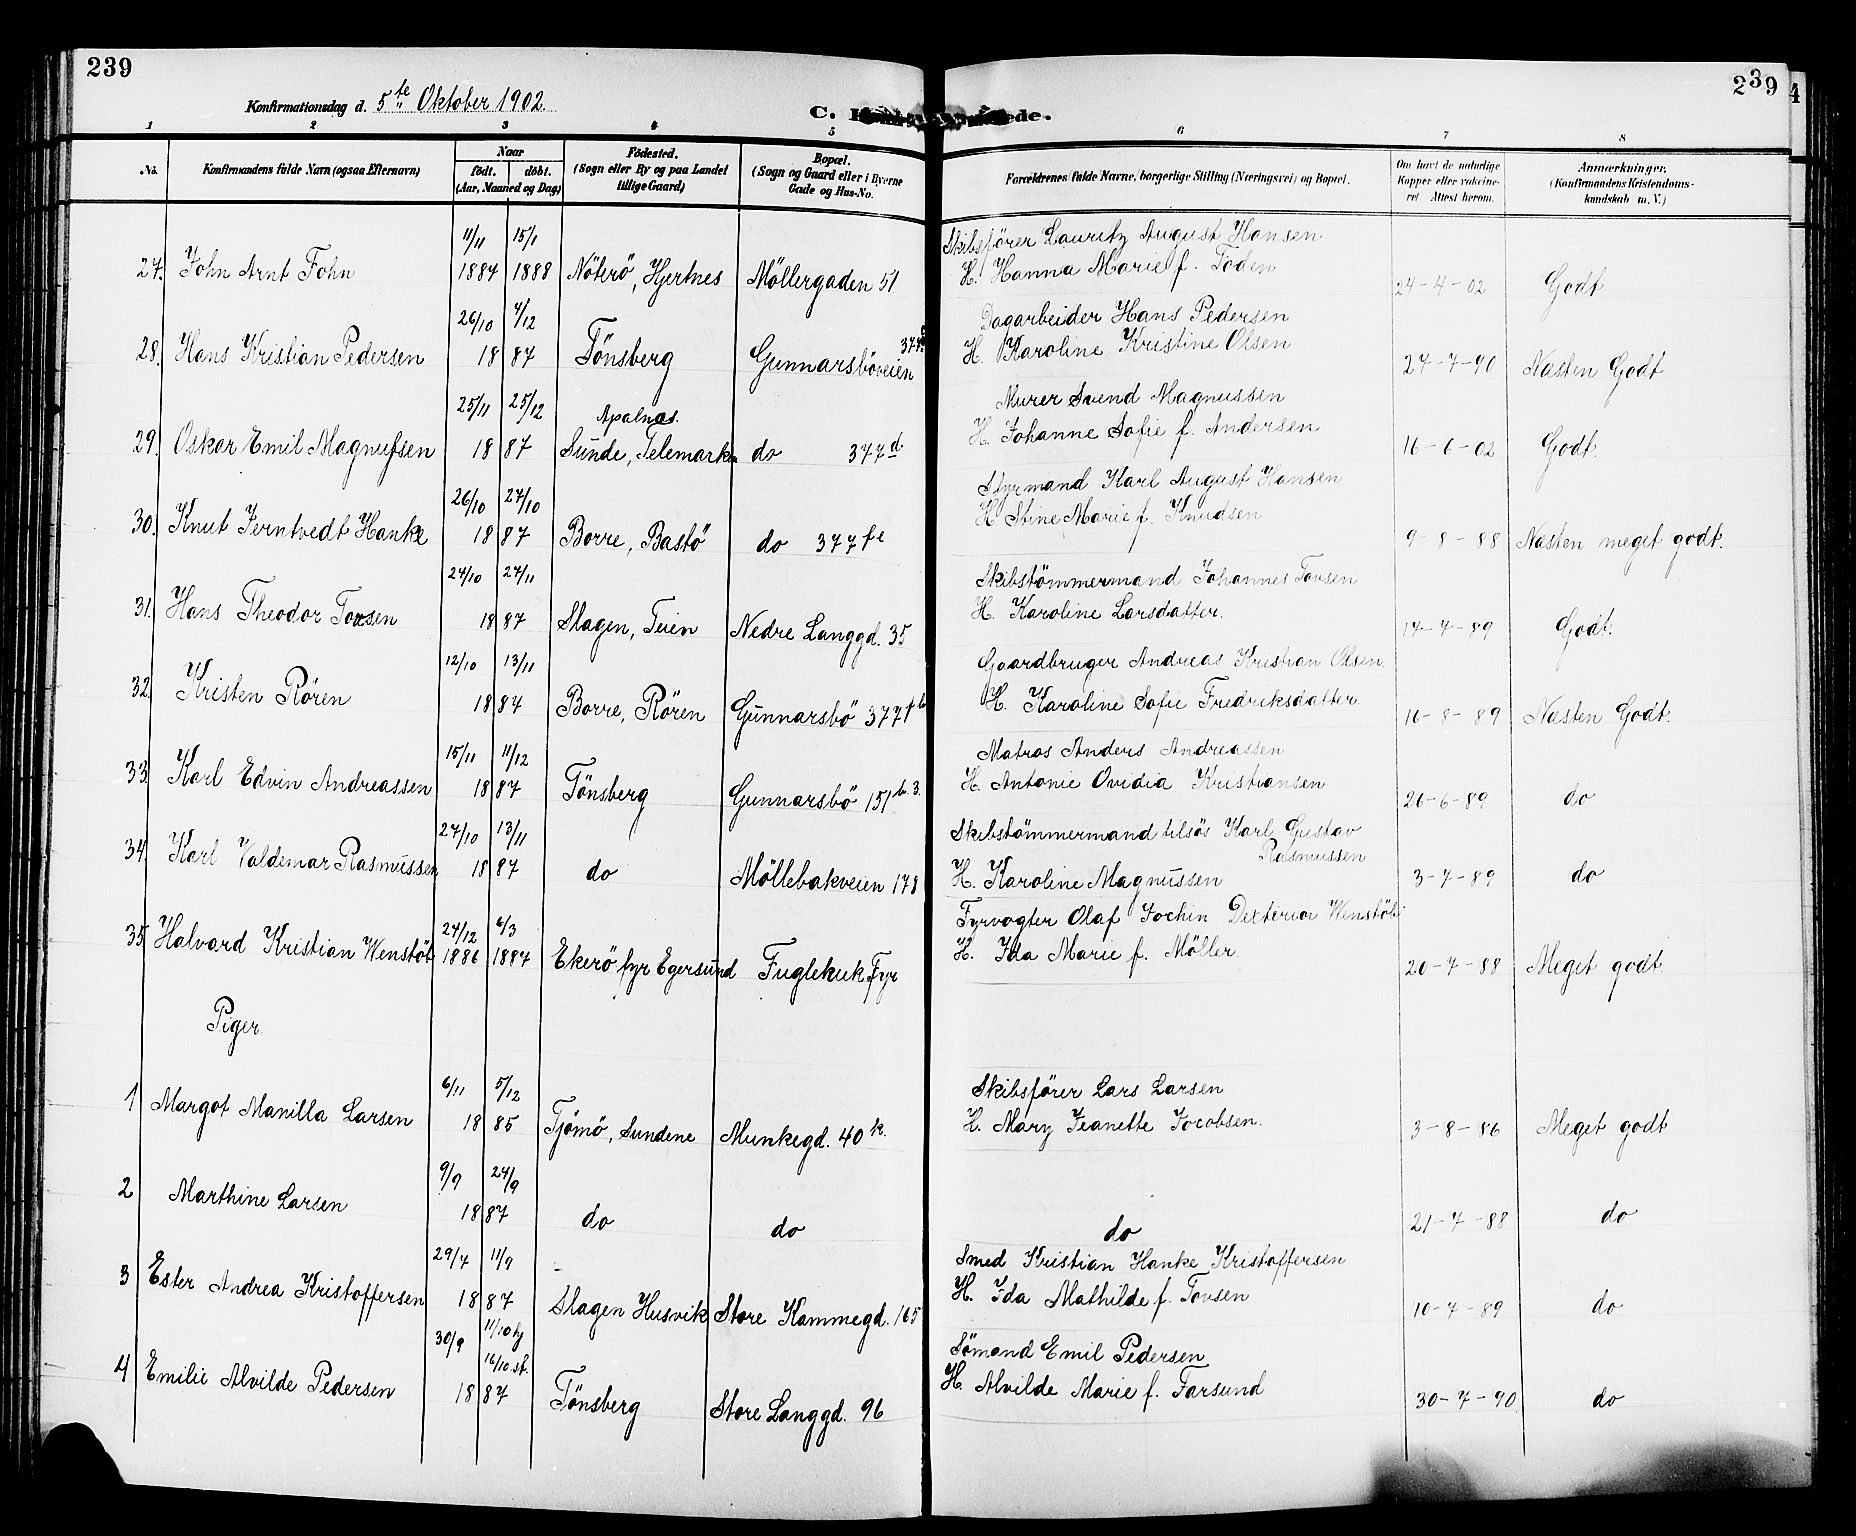 239
239
Konfirmationsdag d. 5te Oktober 1902.
C.
1 2 3 4 5 6 7 8
No.
Konfirmandens fulde Navn (ogsaa Efternavn)
Naar
födt. döbt.
(Aar, Maaned og Dag)
Födested.
(Sogn eller By og paa Landet
tillige Gaard)
Bopæl.
(Sogn og Gaard eller i Byerne
Gade og Hus-No.
Forældrenes fulde Navne, borgerlige Stilling (Næringsvei) og Bopæl.
Om havt de naturlige
Kopper eller vakcine-
ret. Attest herom.
Anmærkninger,
(Konfirmandens Kristendoms-
kundskab m. V.)
11/11 15/1 Skibsförer Lauritz August Hansen
27. John Arnt Fohn 1887 1888 Nöterö, Hjertnes Möllergaden 51 H. Hanna Marie f. Foden 24-4-02 Godt
26/10 4/12 Dagarbeider Hans Pedersen
28. Hans Kristian Pedersen 18 87 Tönsberg Gunnarsböveien H. Karoline Kristine Olsen 27-7-90 Næsten Godt
25/11 25/12 Apalnæs. Murer Svend Magnussen
29. Oskar Emil Magnussen 18 87 Sunde, Telemarken do 377d H. Johanne Sofie f. Andersen 16-6-02 Godt.
26/10 27/10 Styrmand Karl August Hansen
30. Knut Jerntvedt Hanke 18 87 Borre, Bastö do 377 H. Stine Marie f. Knudsen 9-8-88 Næsten meget godt.
24/10 27/11 Skibstömmermand Johannes Tovsen
31. Hans Theodor 18 87 Slagen, Teien Nedre Langgd. 35 H. Karoline Larsdatter. 14-7-89 Godt.
12/10 13/11 Gaardbruger Andreas Kristian Olsen
32. Kristen Rören 18 87 Borre, Rören Gunnarsbö 377 H. Karoline Sofie Fredriksdatter 16-8-89 Næsten Godt.
15/11 11/12 Matros Anders Andreassen
33. Karl Edvin Andreassen 18 87 Tönsberg Gunnarsbö 151 b. 3. H. Antonie Ovidia Kristiansen 26-6-89 do
27/10 13/11 Skibstömmermand tilsös Karl Gustav
Rasmussen
34. Karl Valdemar Rasmussen 18 87 do Möllebakveien 178 H. Karoline Magnussen 3-7-89 do
24/12 6/3 Fyrvogter Olaf Jochin Wenstöb
35. Halvard Kristian Wenstöb 1886 1887 Ekerö fyr Egersund Fuglehuk Fyr H. Ida Marie f. Möller 20-7-88 Meget godt.
Piger.
6/11 5/12 Skibsförer Lars Larsen
1 Margot Manilla Larsen 18 85 Tjömö, Sundene Munkegd. 40 k. H. Mary Jeanette Jocobsen. 3-8-86 Meget godt
9/9 24/9
2 Marthine Larsen 18 87 do do do 21-7-88 do
29/7 11/9 Smed Kristian Hanke Kristoffersen
3 Ester Andrea Kristoffersen 18 87 Slagen Husvik Store Kammegd. 165 H. Ida Mathilde f. Tovsen 10-7-89 do
30/9 11/10 hj
16/10 st. Sömand Emil Pedersen
4 Emilie Alvilde Pedersen 18 87 Tönsberg Store Langgd. 96 H. Alvilde Marie f. Farsund 30-7-90. do